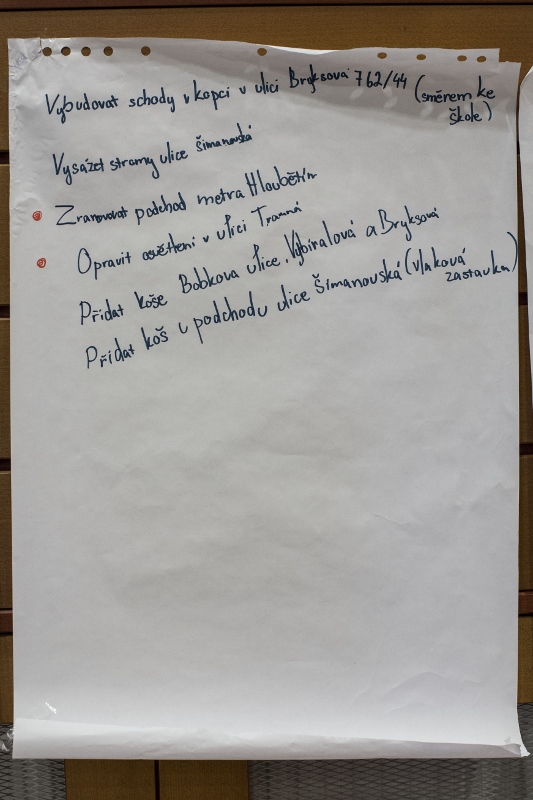 Vybudovat schody v kopci v ulici Bryksova 762/44 (směrem ke
škole)
Vysázet stromy ulice Šimanovská
Zrenovovat podchod metra Hloubětín
Opravit osvětlení v ulici Tramná
Přidat koše Bobkova ulice, Vybíralová a Bryksová
Přidat koš u podchodu ulice Šimanovská (vlaková
zastavka)